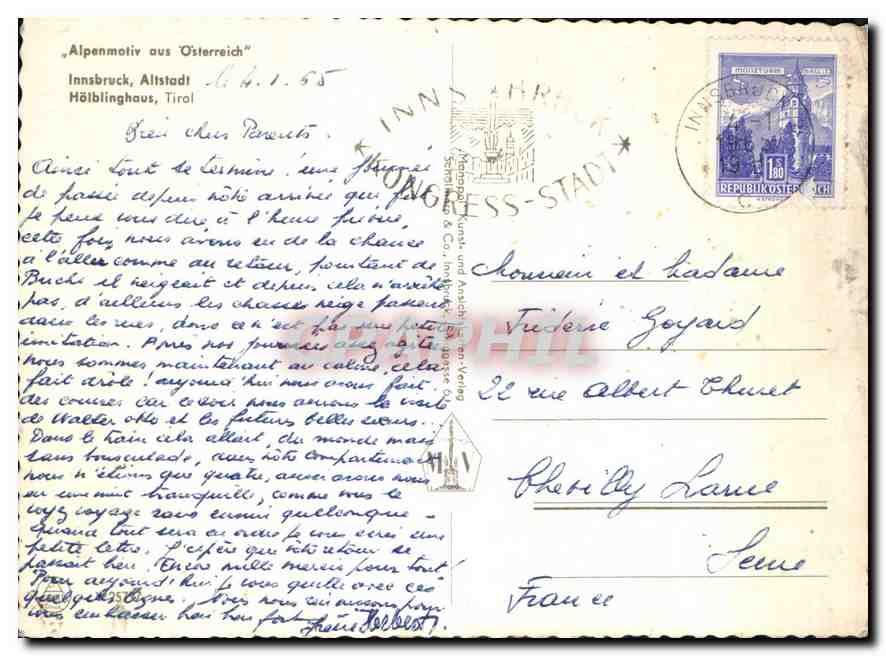 „Alpenmotiv aus Österreich"
Innsbruck, Altstadt
Hölblinghaus, Tirol
le 4.1.65
INNSBRUCK
KONGRESS-STADT
INNSBRUCK
MÜNZTURM HALL i. T.
1.80
REPUBLIK ÖSTERREICH
Bien chers Parents.
Ainsi tout se termine! une journée
de passée depuis nôtre arrivée qui fut
je peux vous dire à l'heure
cette fois, nous avons eu de la chance
à l'aller comme au retour, pourtant de
Buchs il neigeait et depuis cela n'arrête
pas, d'ailleurs les chasses neige passent
dans les rues, donc ce n'est pas une petite
imitation. Après nos journées assez agitées
nous sommes maintenant au calme, cela
fait drôle! aujourd'hui nous avons fait
des courses car ce soir nous aurons la visite
de Walter Otto et les futurs belles sœurs...
Dans le train cela allait, du monde mais
sans bousculade, dans nôte compartement
nous n'étions que quatre, aussi avons nous
eu une nuit tranquille, comme vous le
voyez voyage sans ennui quelconque -
Quand tout sera en ordre je vous écris une
petite lettre. J'espère que vôte retour se
passait bien. Encore mille mercis pour tout!
Pour aujourd'hui je vous quitte avec ces
quelques lignes. Nous nous réunissons pour
vous embrasser bien bien fort
Herbert
Monsieur et Madame
Frédéric Goyard
22 rue Albert Thuret
Chevilly Larue
Seine
France
Monopol Kunst- und Ansichtskarten-Verlag
& Co., Innsbruck,
M V
CPAPHIL